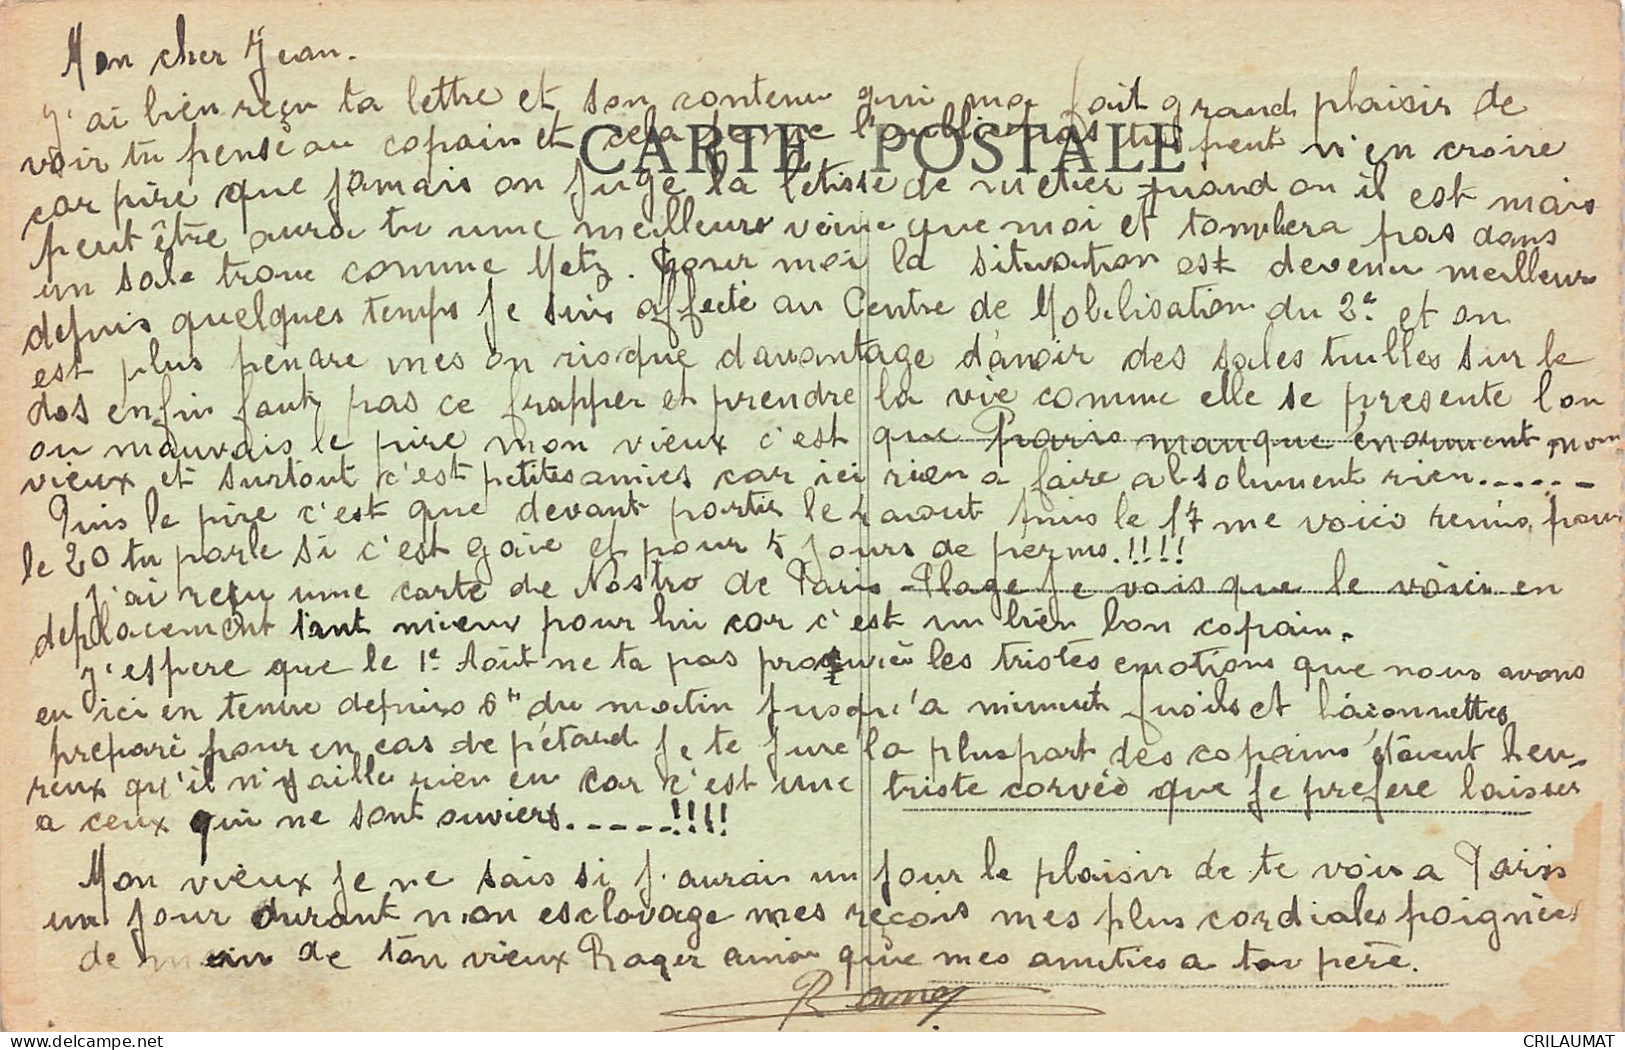 Mon cher Jean.
J'ai bien reçu ta lettre et son contenu qui ma fait grand plaisir de
voir tu pense au copain et cela donne l'oublie pas tu peut m'en croire
CARTE POSTALE
car pire que jamais on juge la de metier quand on il est mais
peut être aura tu une meilleurs veine que moi et tombera pas dans
un sale trou comme Metz. Pour moi la situation est devenu meilleur
depuis quelques temps je suis affecté au Centre de Mobilisation du 2e et on
est plus penare mes on risque davantage d'avoir des sales tuilles sur le
dos enfin faut pas ce frapper et prendre la vie comme elle se presente bon
ou mauvais le pire mon vieux c'est que Paris manque énorment mon
vieux et surtout c'est petites amies car ici rien a faire absolument rien......
Puis le pire c'est que devant partir le 2 aout puis le 17 me voici remis pour
le 20 tu parle si c'est gaie et pour 5 jours de perms.!!!!
J'ai reçu une carte de Nostro de Paris-Plage je vois que le voici en
deplacement tant mieux pour lui car c'est un bien bon copain.
J'espere que le 1e Août ne ta pas procuréé les tristes emotions que nous avons
eu ici en tenue depuis 6h du matin jusqu'a minuit fusils et baionnettes
preparé pour en cas de pétard je te jure la pluspart des copains étaient heu-
reux qu'il n'y aille rien eu car c'est une triste corvée que je prefere laisser
a ceux qui ne sont ouviers......!!!!
Mon vieux je ne sais si j'aurais un jour le plaisir de te voir a Paris
un jour durant mon esclavage mes reçois mes plus cordiales poignées
de main de ton vieux Roger ainsi que mes amities a ton père.
Roger
CRILAUMAT